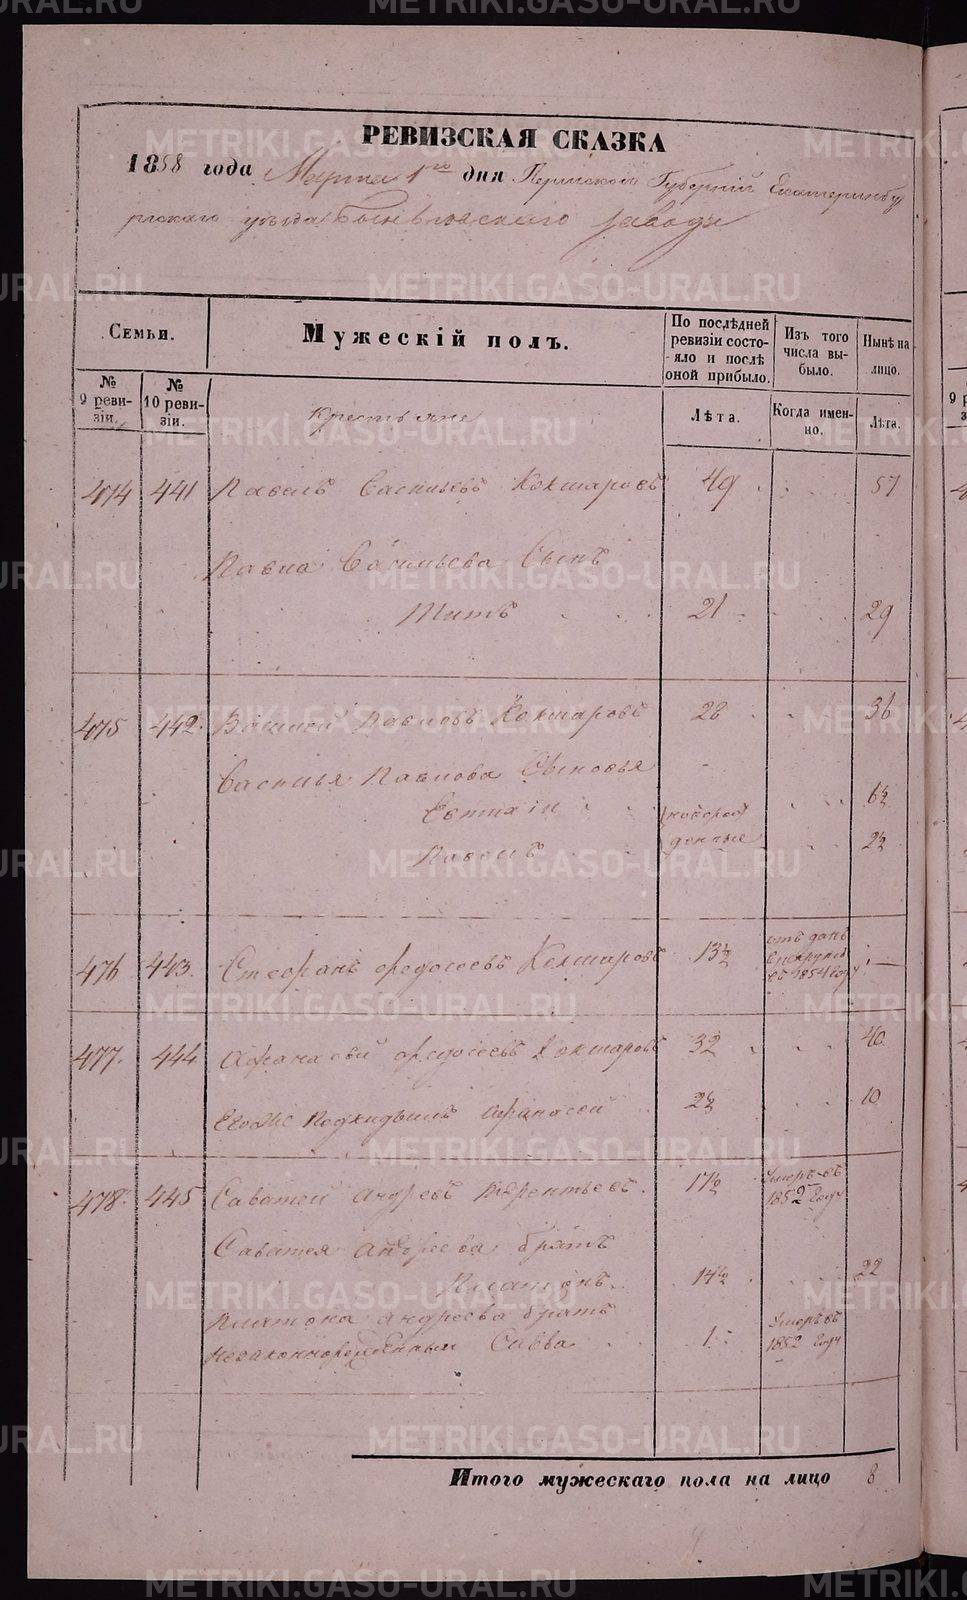 РЕВИЗСКАЯ СКАЗКА
1858 года Марта 1го дня Пермской Губерніи Екатеринбу
ргскаго уѣзда Быньговскаго завода
Семьи.
Мужескій полъ.
По послѣдней ревизіи состояло и послѣ оной прибыло.
Изъ того числа выбыло.
Нынѣ на лицо.
№ 9 ревизіи.
№ 10 ревизіи.
Крестьяне
Лѣта.
Когда именно.
Лѣта.
474 441 Павелъ Васильевъ Кокшаровъ 49 57
Павла Васильева Сынъ
Титъ 21 29
475 442 Василій Павловъ Кокшаровъ 28 36
Василья Павлова Сыновья
Евтихій новорож 6½
Павелъ денные 2½
476 443. Стефанъ Федосѣевъ Кокшаровъ 13½ отъданъ в рекруты въ 1854 году —
477. 444 Афанасій Федосѣевъ Кокшаровъ 32 40
Его же Подкидышъ Афанасей 2½ 10
478. 445 Саватей Андреевъ Терентьевъ 17½ Умеръ въ 1852 году
Саватея Андреева братъ
Платонъ 14½ 22
Платона Андреева братъ
незаконнорожденный Савва 1 Умеръ въ 1852 году
Итого мужескаго пола на лицо 8
METRIKI.GASO-URAL.RU